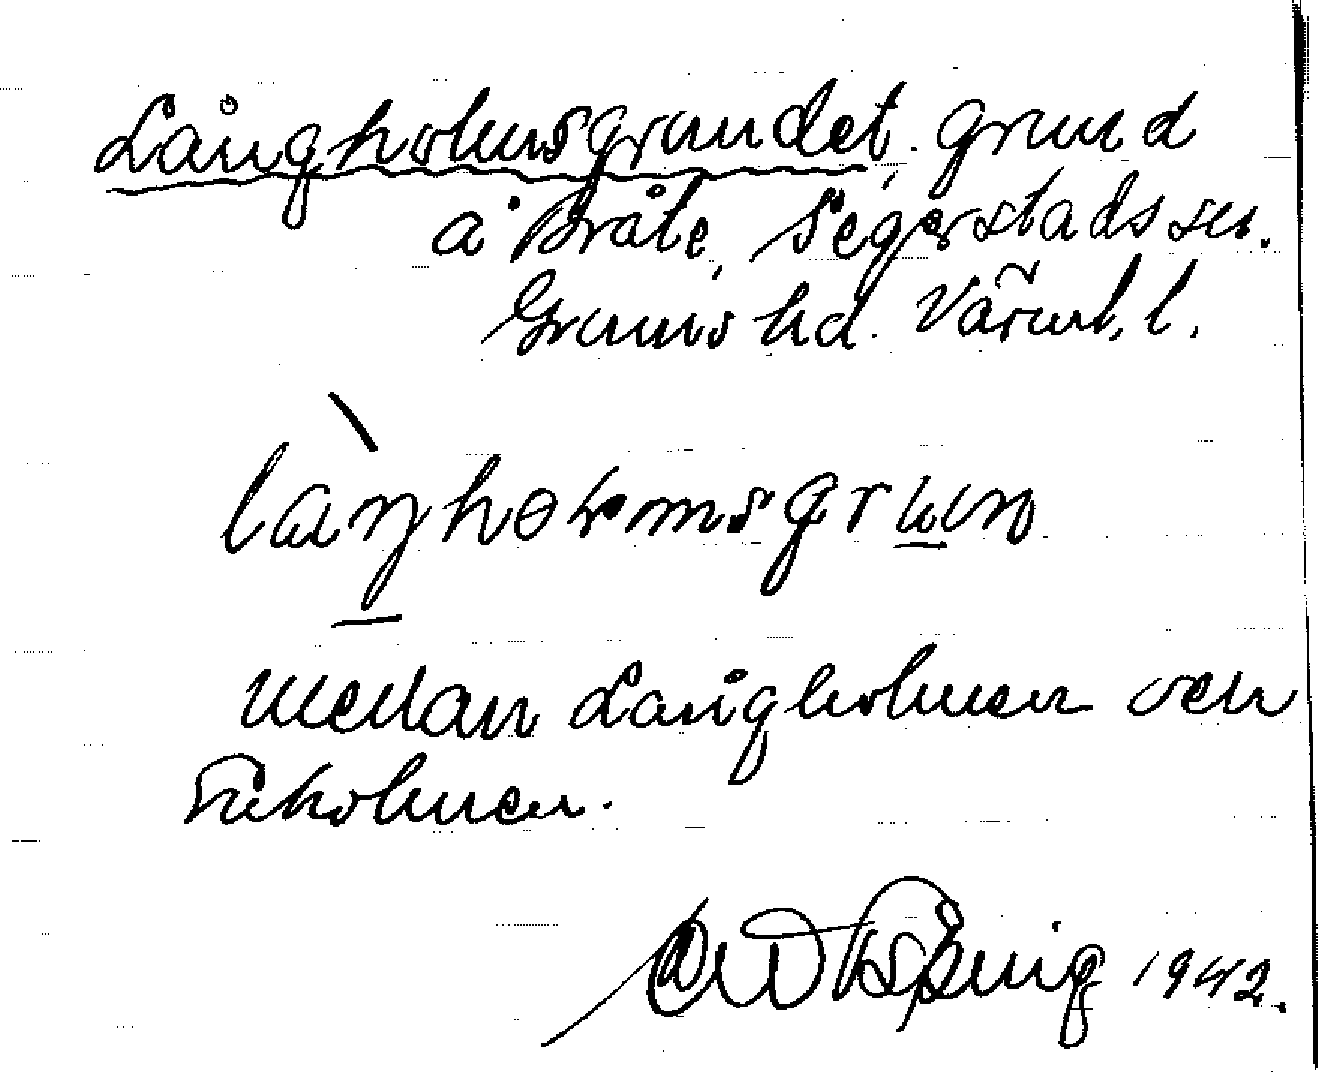 Långholmsgrundet, grund
å Bråte, Segerstads sn.
Grums hd. Värml. l.
làŋholmsgrunn
Mellan Långholmen och
Furholmen.
1942.